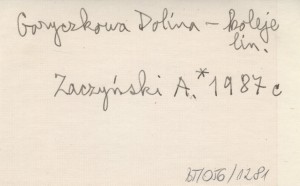 Goryczkowa Dolina – koleje
lin.
Zaczyński A.* 1987 c
bT/OTG/1281